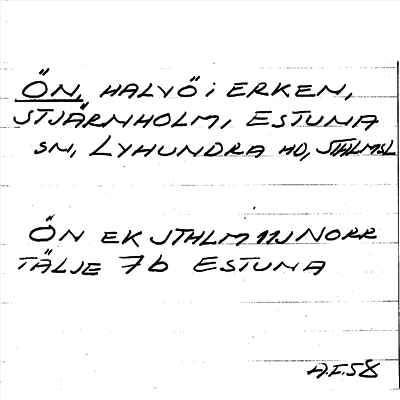 ÖN, HALVÖ i ERKEN,
STJÄRNHOLM, ESTUNA
SN, LYHUNDRA HD, STHLMSL
ÖN EK STHLM 11J NORR
TÄLJE 7b ESTUNA
A.F.58